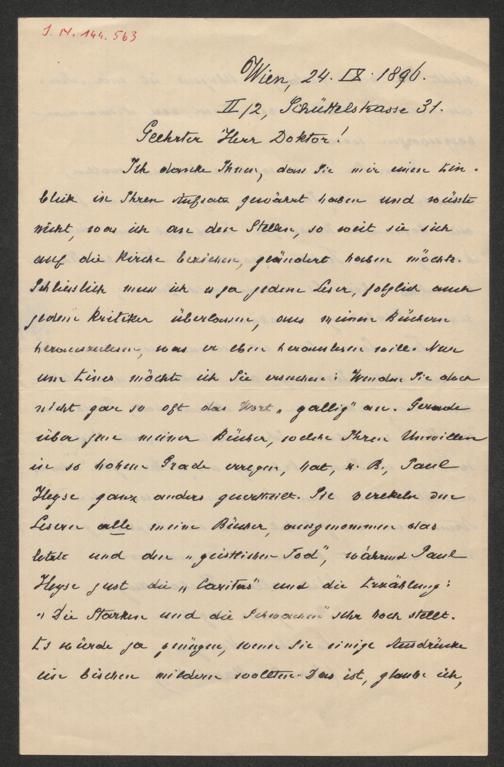 J. N. 144.563
Wien, 24. IX. 1896.
II/2, Schüttelstrasse 31.
Geehrter Herr Doktor!
Ich danke Ihnen, dass Sie mir einen Ein-
blick in Ihren Aufsatz gewährt haben und wüsste
nicht, was ich an den Stellen, so weit sie sich
auf die Kirche beziehen, geändert haben möchte.
Schliesslich muss ich ja jedem Leser, folglich auch
jedem Kritiker überlassen, aus meinen Büchern
herauszulesen, was er eben herauslesen will. Nur
um Eines möchte ich Sie ersuchen: Wenden Sie doch
nicht gar so oft das Wort „gallig" an. Gerade
über jene meiner Bücher, welche Ihren Unwillen
in so hohem Grade erregen, hat, z. B., Paul
Heyse ganz anders geurtheilt. Sie verekeln den
Lesern alle meine Bücher, ausgenommen das
letzte und den „geistlichen Tod", während Paul
Heyse just die „Caritas" und die Erzählung:
„Die Starken und die Schwachen" sehr hoch stellt.
Es würde ja genügen, wenn Sie einige Ausdrücke
ein bischen mildern wollten. Das ist, glaube ich,